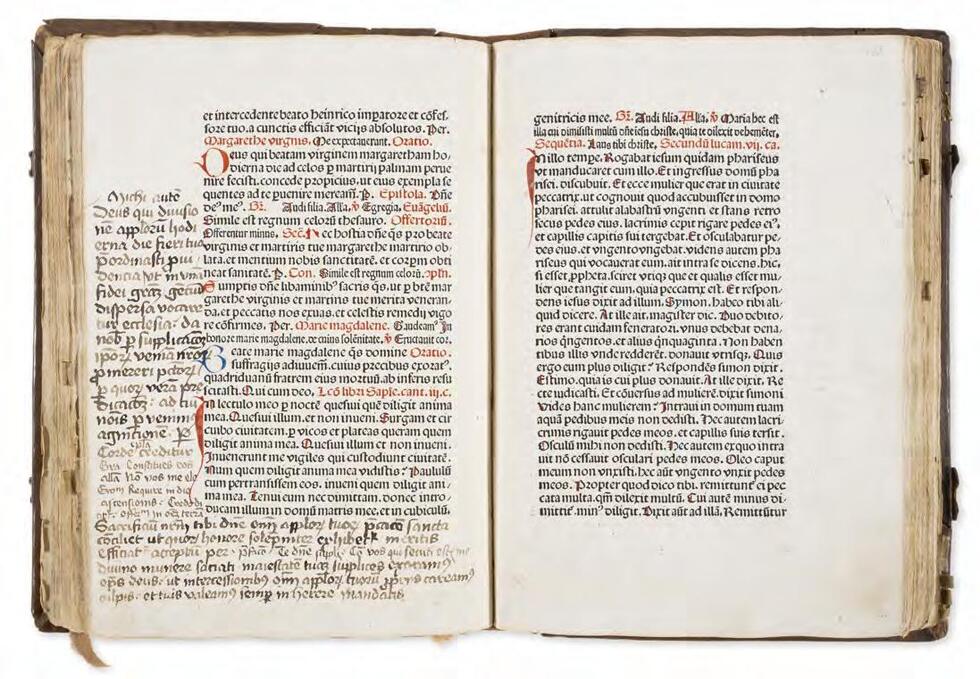 et intercedente beato heinrico imꝑatore et cõfes-
sore tuo. a cunctis efficiãt vicijs absolutos. Per.
Margarethe virginis. Me expectauerunt. Oratio.
Deus qui beatam virginem margaretham ho-
dierna die ad celos ꝑ martirij palmam perue
nire fecisti. concede propicius. ut eius exempla se
quentes ad te ꝑuenire meream̃. P. Epistola. Dñe
de⁹ me⁹. Gr̃. Audi filia. Alla. ꝟ Egregia. Euãgeliũ.
Simile est regnum celoꝝ thesauro. Offertoriũ.
Offerentur minus. Sec̃. Hec hostia dñe q̃s pro beate
virginis et martiris tue margarethe martirio ob-
lata. et mentium nobis sanctitatẽ. et corꝑm obti
neat sanitatẽ. P. Con. Simile est regnum celoꝝ. ↄpl̃n.
Sumptis dñe libaminib⁹ sacris q̃s. ut ꝑ bẽtẽ mar
garethe virginis et martiris tue merita veneran-
da. et peccatis nos exuas. et celestis remedij vigo
re cõfirmes. Per. Marie magdalene. Gaudeam⁹ In
honore marie magdalene. de cuius solẽnitate. ꝟ Eructauit cor.
Beate marie magdalene q̃s domine Oratio.
suffragijs adiuuem̃. cuius precibus exorat⁹.
quadriduanũ fratrem eius mortuũ. ab inferis resu
scitasti. Qui cum deo. Lcõ libri Sapie. cant. iij. c.
In lectulo meo ꝑ noctẽ quesiui quẽ diligit anima
mea. Quesiui illum. et non inueni. Surgam et cir
cuibo ciuitatem. ꝑ vicos et plateas queram quem
diligit anima mea. Quesiui illum et non inueni.
Inuenerunt me vigiles qui custodiunt ciuitatẽ.
Num quem diligit anima mea vidistis? Paululũ
cum pertransissem eos. inueni quem diligit ani-
ma mea. Tenui eum nec dimittam. donec intro-
ducam illum in domũ matris mee. et in cubiculũ
Michi autẽ
Deus qui diuisio
ne apploꝝ hodi
erna die fieri tua
ꝓordinasti ꝓui
dentia ut in vnã
fidei grãꝫ gẽtiũ
dispersa vocare
tur ecclesia: da
nob̃ ꝑ
ipoꝝ veniã nr̃oꝝ
ꝓmereri
ꝑ quoꝝ verã pre
: ad tui
nois ꝑ venim⁹
agnitionẽ. Pe
Corde creditur
Constitues eos
Sacrificiũ tibi dñe oĩm apploꝝ tuoꝝ ꝑcatio sancta
cõciliet ut quoꝝ honore solenniter exhibet̃ meritis
efficiat̃ acceptũ per. Te dñe Vos qui secuti estis me
diuino munere satiati maiestatẽ tuã supplices exoram⁹
op̃s deus: ut intercessionibus oĩm apploꝝ tuoꝝ caream⁹
culpis: et tuis valeam⁹ semꝑ inherere mandatis
genitricis mee. Gr̃. Audi filia. Alla. ꝟ Maria hec est
illa cui dimisisti multũ dñe iesu christe, quia te dilexit vehemẽter.
Sequẽtia. Laus tibi christe. Secundũ lucam. vij. ca.
In illo tempe. Rogabat iesum quidam phariseus
vt manducaret cum illo. Et ingressus domũ pha
risei. discubuit. Et ecce mulier que erat in ciuitate
peccatrix. ut cognouit quod accubuisset in domo
pharisei. attulit alabastrũ vngenti et stans retro
secus pedes eius. lacrimis cepit rigare pedes ei⁹.
et capillis capitis sui tergebat. Et osculabatur pe-
des eius. et vngento vngebat. videns autem pha
riseus qui vocauerat eum. ait intra se dicens. hic.
si esset ꝓpheta. sciret vtiq̃ que et qualis esset mu-
lier que tangit eum, quia peccatrix est. Et respon-
dens iesus dixit ad illum. Symon. habeo tibi ali-
quid dicere. At ille ait. magister dic. Duo debito-
res erant cuidam feneratori. vnus debebat dena-
rios q̃ngentos. et alius q̃nquaginta. Non haben
tibus illis vnde redderẽt. donauit vtrisq̃. Quis
ergo eum plus diligit? Respondẽs simon dixit.
Estimo. quia is cui plus donauit. At ille dixit. Re
cte iudicasti. Et cõuersus ad mulierẽ. dixit simoni
Vides hanc mulierem? Intraui in domum tuam
aquã pedibus meis non dedisti. Hec autem lacri-
crimis rigauit pedes meos. et capillis suis tersit.
Osculũ mihi non dedisti. Hec autem ex quo intra
uit nõ cessauit osculari pedes meos. Oleo caput
meum non vnxisti. hec aũt vngento vnxit pedes
meos. Propter quod dico tibi. remittunt̃ ei pec
cata multa. qm̃ dilexit multũ. Cui autẽ minus di-
mittit̃. min⁹ diligit. Dixit aũt ad illã. Remittũtur